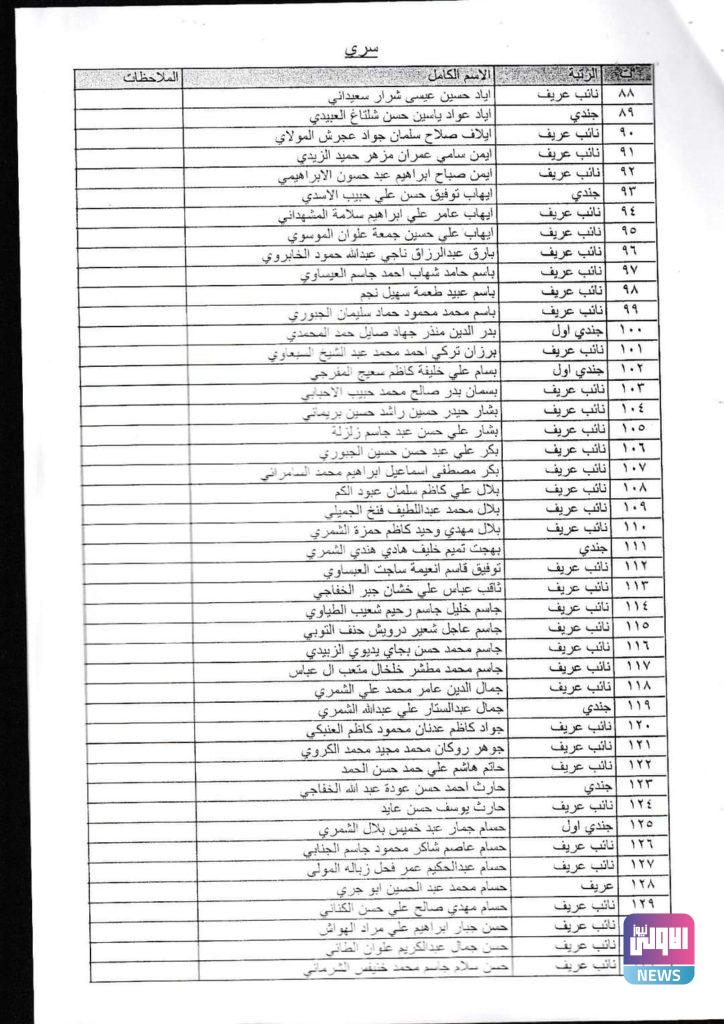 سري
ت الرتبة الاسم الكامل الملاحظات
٨٨ نائب عريف اياد حسين عيسى شرار سعيداني
٨٩ جندي اياد عواد ياسين حسن شلتاغ العبيدي
٩٠ نائب عريف ايلاف صلاح سلمان جواد عجرش المولاي
٩١ نائب عريف ايمن سامي عمران مزهر حميد الزيدي
٩٢ نائب عريف ايمن صباح ابراهيم عبد حسون الابراهيمي
٩٣ جندي ايهاب توفيق حسن علي حبيب الاسدي
٩٤ نائب عريف ايهاب عامر علي ابراهيم سلامة المشهداني
٩٥ نائب عريف ايهاب علي حسين جمعة علوان الموسوي
٩٦ نائب عريف بارق عبدالرزاق ناجي عبدالله حمود الخابروي
٩٧ نائب عريف باسم حامد شهاب احمد جاسم العيساوي
٩٨ نائب عريف باسم عبيد طعمة سهيل نجم
٩٩ نائب عريف باسم محمد محمود حماد سليمان الجبوري
١٠٠ جندي اول بدر الدين منذر جهاد صايل حمد المحمدي
١٠١ نائب عريف برزان تركي احمد محمد عبد الشيخ السبعاوي
١٠٢ جندي اول بسام علي خليفة كاظم سعيج المفرجي
١٠٣ نائب عريف بسمان بدر صالح محمد حبيب الاحبابي
١٠٤ نائب عريف بشار حيدر حسين راشد حسين بريماني
١٠٥ نائب عريف بشار علي حسن عبد جاسم زلزلة
١٠٦ نائب عريف بكر علي عبد حسن حسين الجبوري
١٠٧ نائب عريف بكر مصطفى اسماعيل ابراهيم محمد السامرائي
١٠٨ نائب عريف بلال علي كاظم سلمان عبود الكم
١٠٩ نائب عريف بلال محمد عبداللطيف فنخ الجميلي
١١٠ نائب عريف بلال مهدي وحيد كاظم حمزة الشمري
١١١ جندي بهجت تميم خليف هادي هندي الشمري
١١٢ نائب عريف توفيق قاسم انعيمة ساجت العيساوي
١١٣ نائب عريف ثاقب عباس علي خشان جبر الخفاجي
١١٤ نائب عريف جاسم خليل جاسم رحيم شعيب الطياوي
١١٥ نائب عريف جاسم عاجل شعير درويش حنف التوبي
١١٦ نائب عريف جاسم محمد حسن بجاي يديوي الزبيدي
١١٧ نائب عريف جاسم محمد مطشر خلخال متعب ال عباس
١١٨ نائب عريف جمال الدين عامر محمد علي الشمري
١١٩ جندي جمال عبدالستار علي عبدالله الشمري
١٢٠ نائب عريف جواد كاظم عدنان محمود كاظم العنبكي
١٢١ نائب عريف جوهر روكان محمد مجيد محمد الكروي
١٢٢ نائب عريف حاتم هاشم علي حمد حسن الحمد
١٢٣ جندي حارث احمد حسن عودة عبد الله الخفاجي
١٢٤ نائب عريف حارث يوسف حسن عايد
١٢٥ جندي اول حسام جمار عبد خميس بلال الشمري
١٢٦ نائب عريف حسام عاصم شاكر محمود جاسم الجنابي
١٢٧ نائب عريف حسام عبدالحكيم عمر فحل زباله المولى
١٢٨ عريف حسام محمد عبد الحسين ابو جري
١٢٩ نائب عريف حسام مهدي صالح علي حسن الكناني
نائب عريف حسن جبار ابراهيم علي مراد الهواش
نائب عريف حسن جمال عبدالكريم علوان الطائي
نائب عريف حسن سلام جاسم محمد خنيفس الشرماني
الاولى نيوز
NEWS